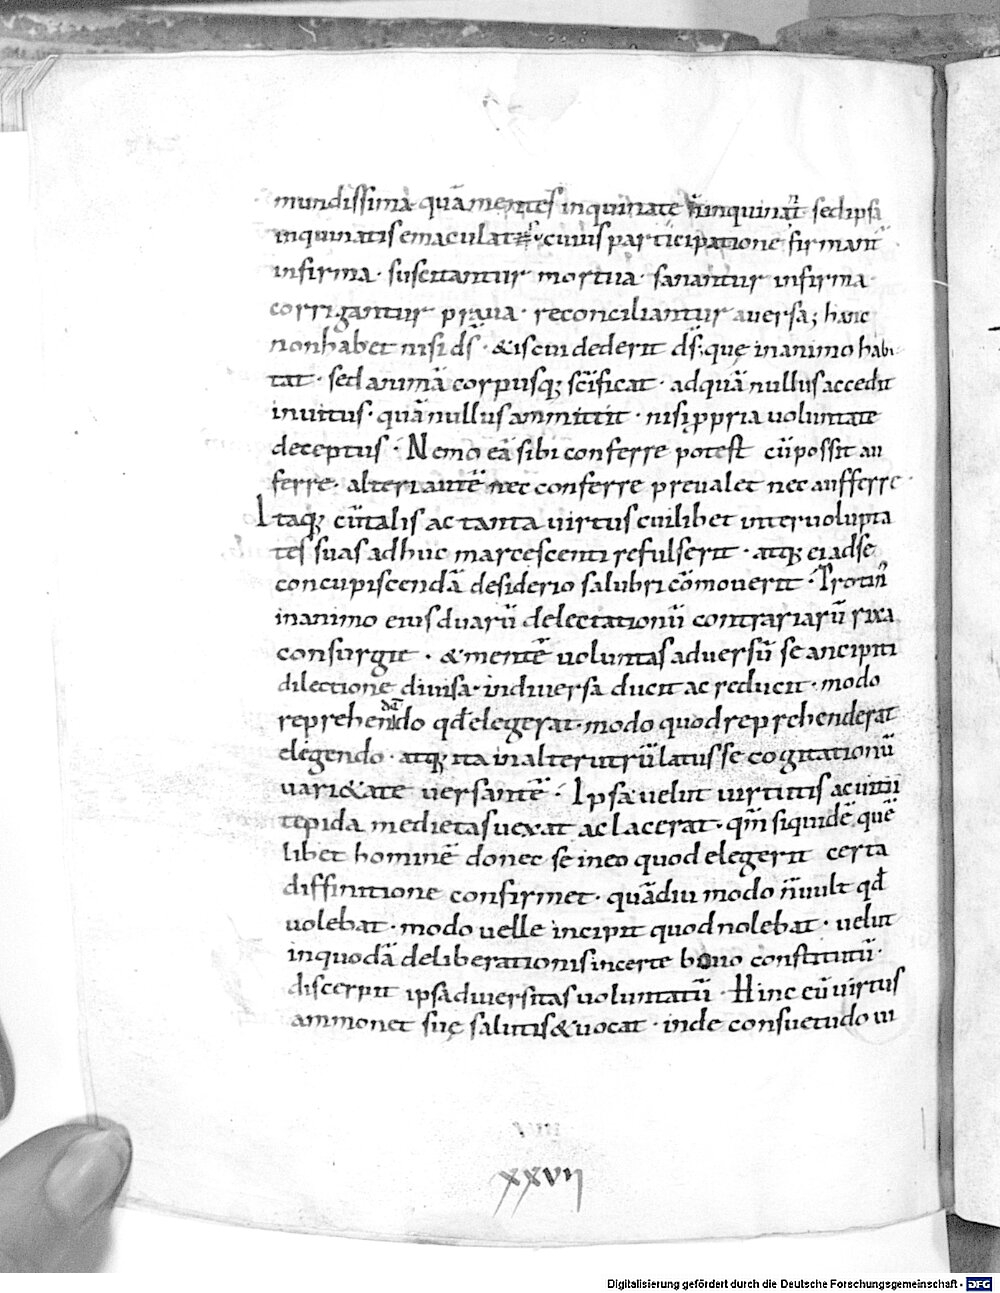 mundissima · quā mentes inquinate n̄ inquinat̄ sed ipsa
inquinatis emaculat · cuius participatione firmant̄
infirma · suscitantur mortua · sanantur infirma ·
corrigantur praua · reconciliantur auersa ; hanc
non habet nisi d̄s · & is cui dederit d̄s · quę in animo habi
tat · sed animā corpusq; sc̄ificat · ad quā nullus accedit
inuitus · quā nullus ammittit · nisi ꝓpria uoluntate
deceptus · Nemo eā sibi conferre potest cū possit au
ferre · alteri autē nec conferre preualet nec aufferre ·
Itaq; cū talis ac tanta uirtus cuilibet inter uolupta
tes suas adhuc marcescenti refulserit · atq; ei ad se
concupiscendā desiderio salubri cōmouerit ·
in animo eius duarū delectationū contrariarū rixa
consurgit · & mentē uoluntas aduersū se ancipiti
dilectione diuisa · in diuersa ducit ac reducit · modo
reprehendendo qđ elegerat · modo quod reprehenderat
elegendo · atq; ita in alterutrū latus se cogitationū
uari&ate uersantē · Ipsa uelut uirtutis ac uitii
tepida medietas uexat ac lacerat · qm̄ siquidē quē
libet hominē donec se in eo quod elegerit certa
diffinitione confirmet · quādiu modo n̄ uult qđ
uolebat · modo uelle incipit quod nolebat · uelut
in quodā deliberationis incerte bono constitutū ·
discerpit ipsa diuersitas uoluntatū · Hinc eū uirtus
ammonet suę salutis & uocat · inde consuetudo ui
XXVII
Digitalisierung gefördert durch die Deutsche Forschungsgemeinschaft - DFG